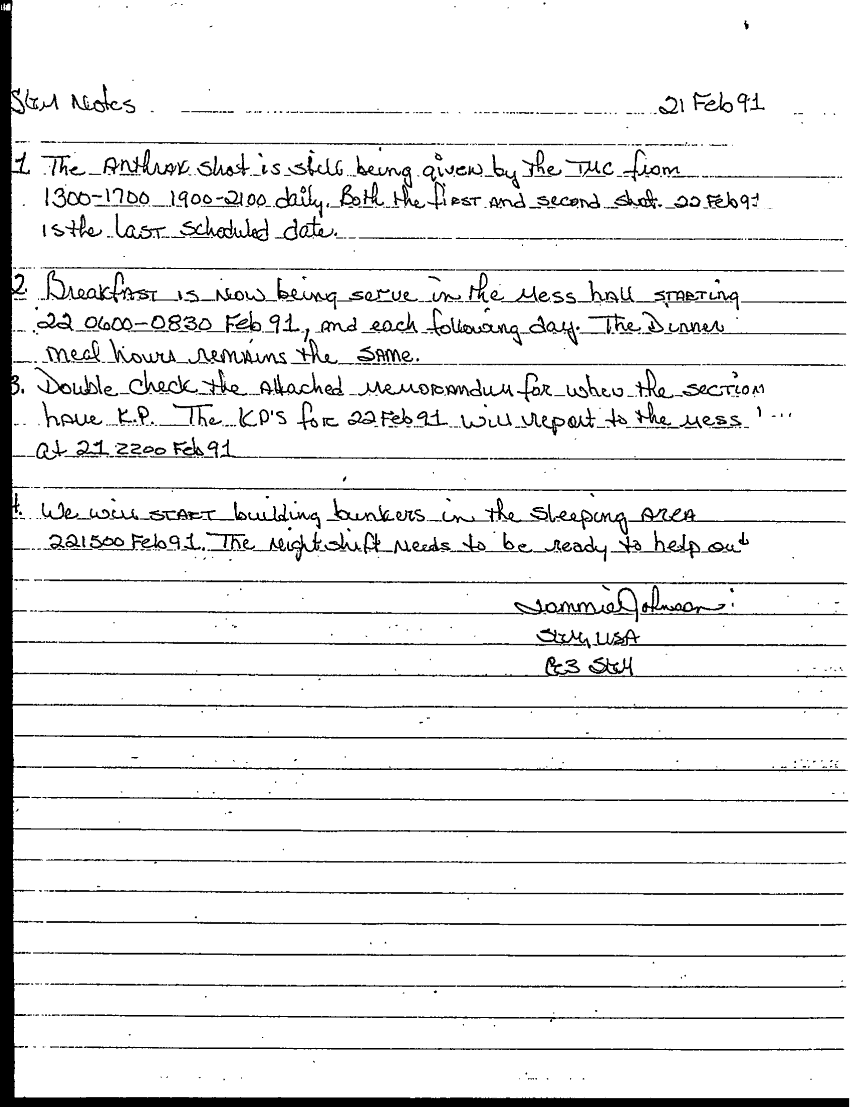 SGM Notes 21 Feb 91
1. The Anthrax shot is still being given by the TMC from
1300-1700 1900-2100 daily. Both the first and second shot. 22 Feb 91
is the last scheduled date.
2. Breakfast is now being serve in the Mess hall starting
22 0600-0830 Feb 91, and each following day. The Dinner
meal hours remains the same.
3. Double check the Attached memorandum for when the section
have K.P. The KP's for 22 Feb 91 will report to the mess
at 21 2200 Feb 91
4. We will start building bunkers in the sleeping area
221500 Feb 91. The night shift needs to be ready to help out
Sammie Johnson
SGM, USA
SGM